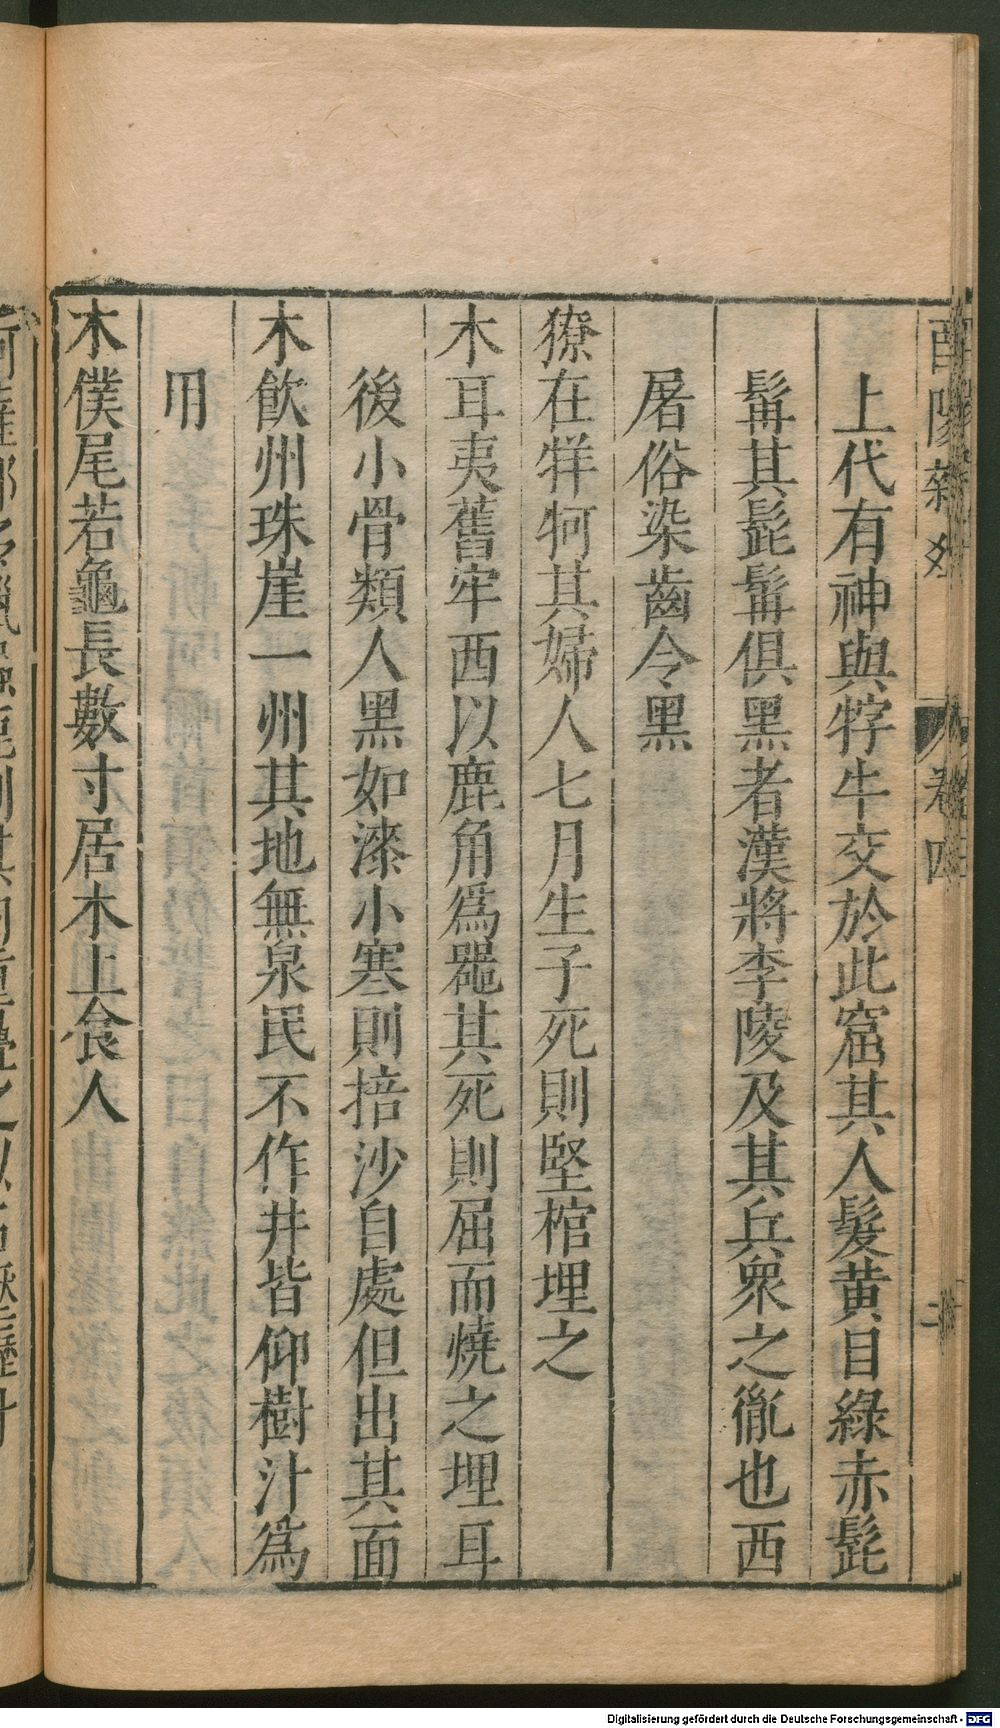 上代有神與牸牛交於此窟其人髮黄目綠赤髭
髯其髭髯俱黑者漢將李陵及其兵衆之胤也西
屠俗染齒令黑
獠在牂牁其婦人七月生子死則堅棺埋之
木耳夷舊牢西以鹿角爲器其死則屈而燒之埋耳
後小骨類人黑如漆小寒則掊沙自處但出其面
木飮州珠崖一州其地無泉民不作井皆仰樹汁爲
用
木僕尾若龜長數寸居木上食人
卷四
Digitalisierung gefördert durch die Deutsche Forschungsgemeinschaft - DFG